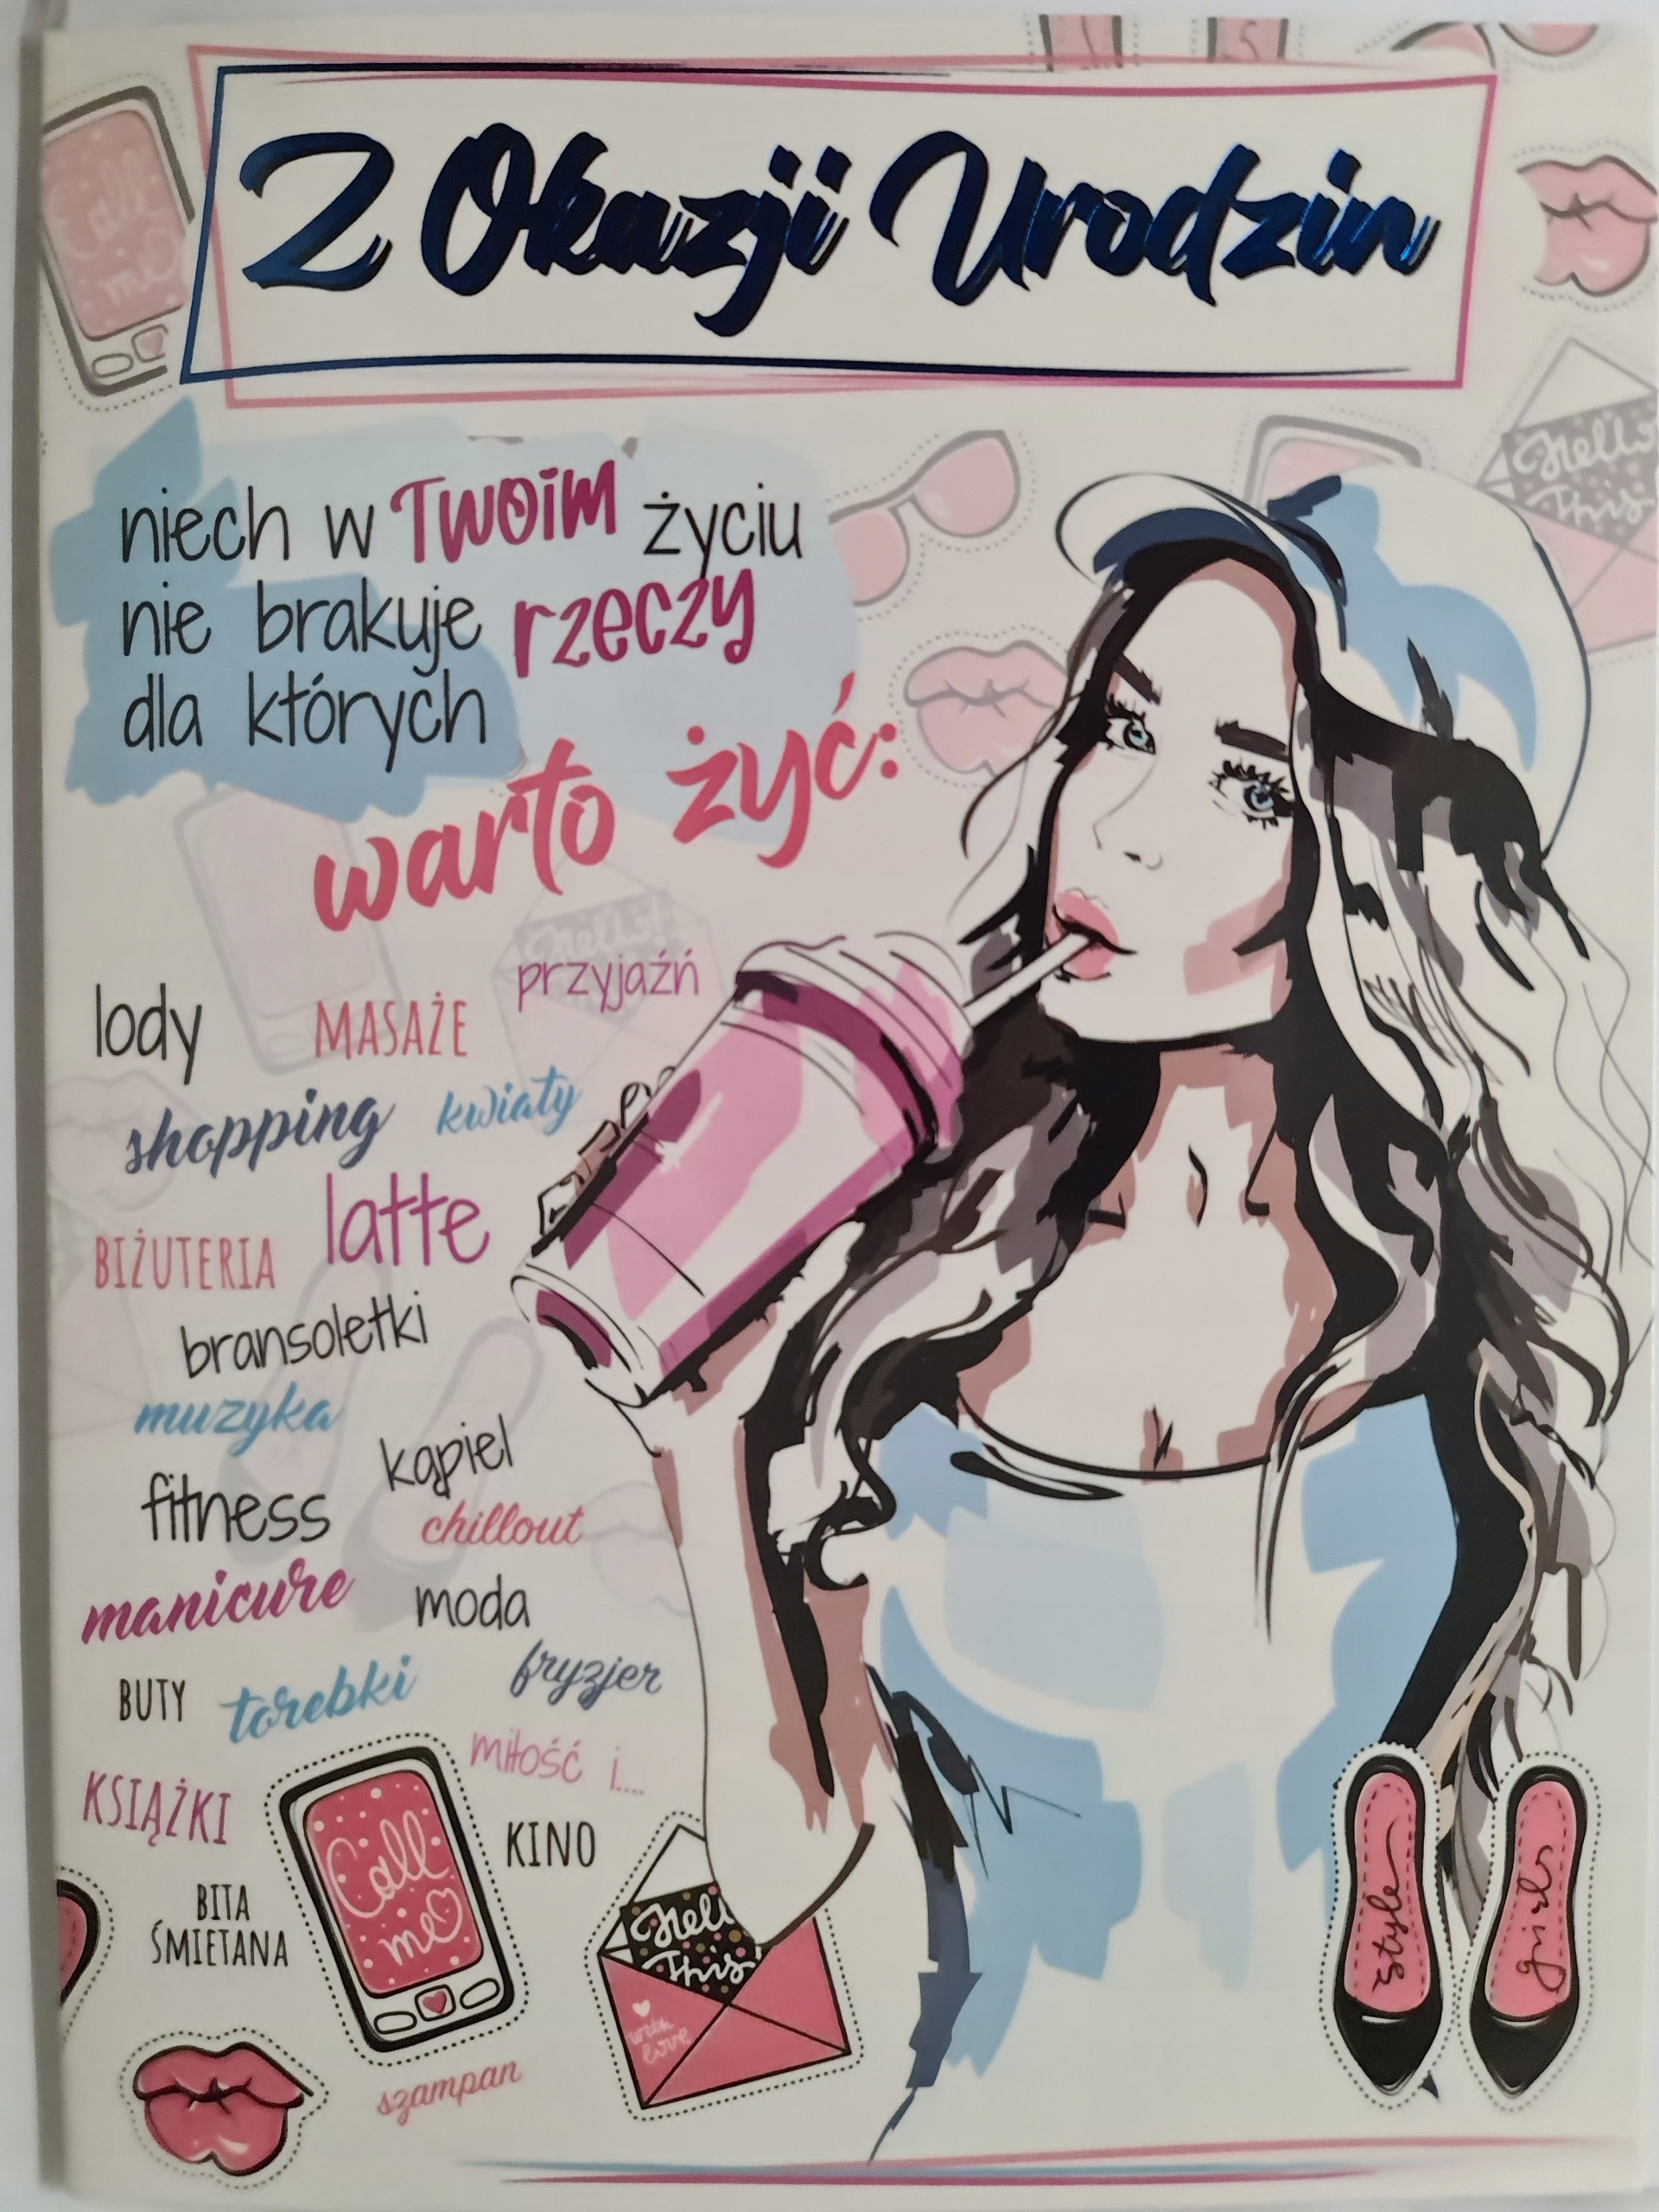 Z Okazji Urodzin
niech w Twoim życiu
nie brakuje rzeczy
dla których
warto żyć:
przyjaźń
lody MASAŻE
shopping kwiaty
latte
BIŻUTERIA
bransoletki
muzyka
kąpiel
fitness
chillout
manicure moda
BUTY torebki fryzjer
miłość i....
KSIĄŻKI
KINO
BITA
ŚMIETANA
Call
me
Hell
This
with
love
szampan
Style
girls
Call
me
Hello
This
Hello